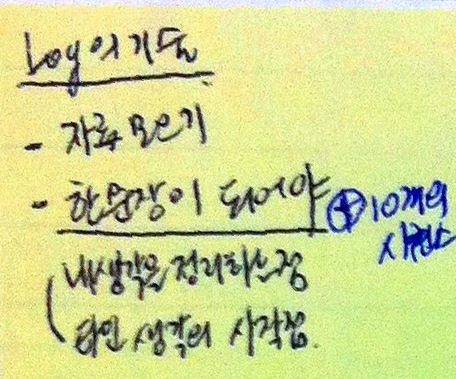 Log의 기능
- 자료 모으기
- 한 문장이 되어야 + 10개의
내 생각을 정리하는점
타인 생각의 시작점.